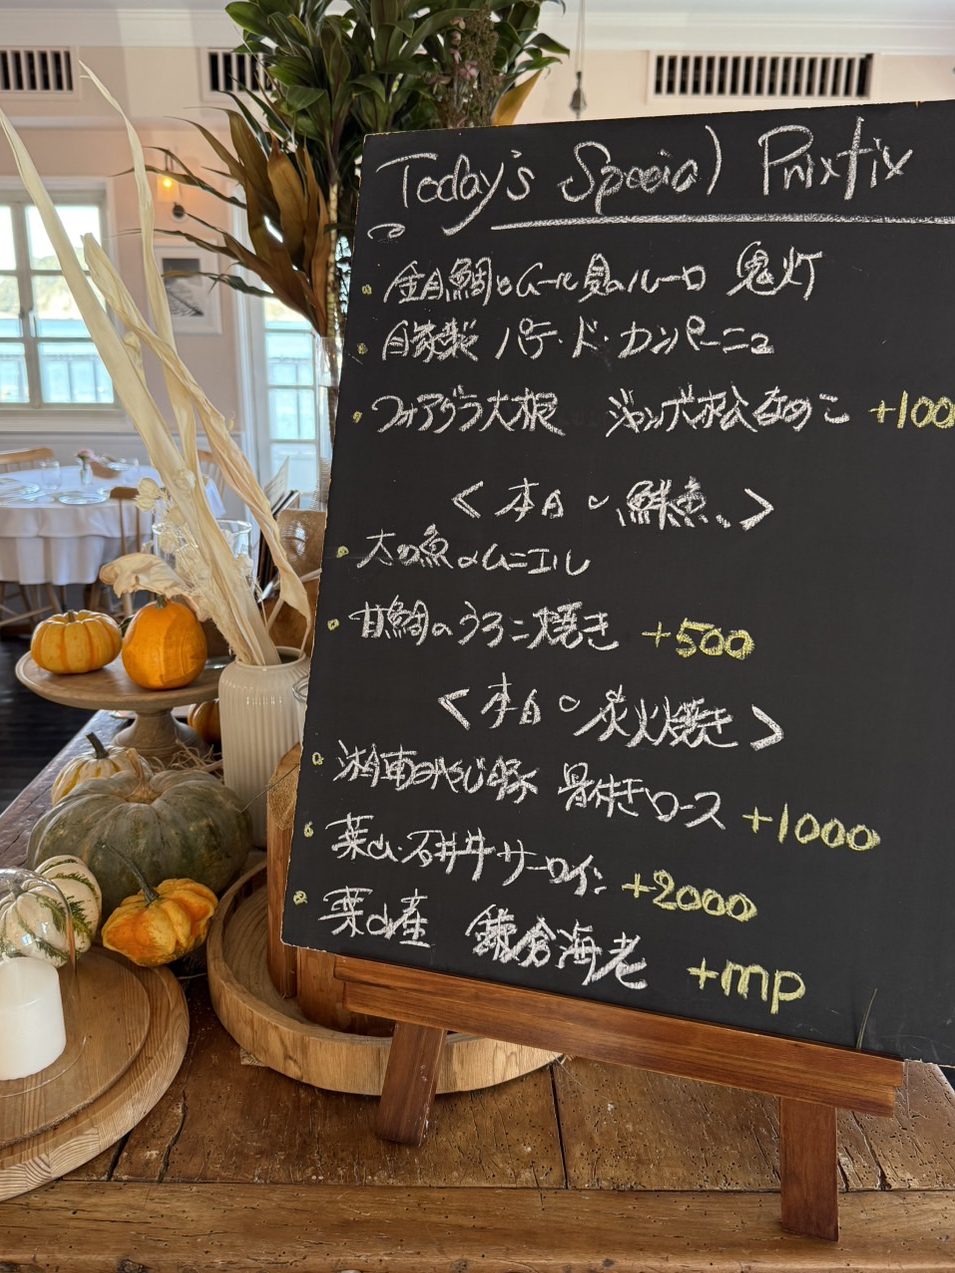 Today's Special Prixfix
・金目鯛とムール貝のルーロ 鬼灯
・自家製 パテ・ド・カンパーニュ
・フォアグラ大根 ジャンボ松なめこ +100
<本日の鮮魚>
・太刀魚のムニエル
・甘鯛のうろこ焼き +500
<本日の炭火焼き>
・湘南みやじ豚 骨付きロース +1000
・葉山・石井牛サーロイン +2000
・葉山産 鎌倉海老 +mp